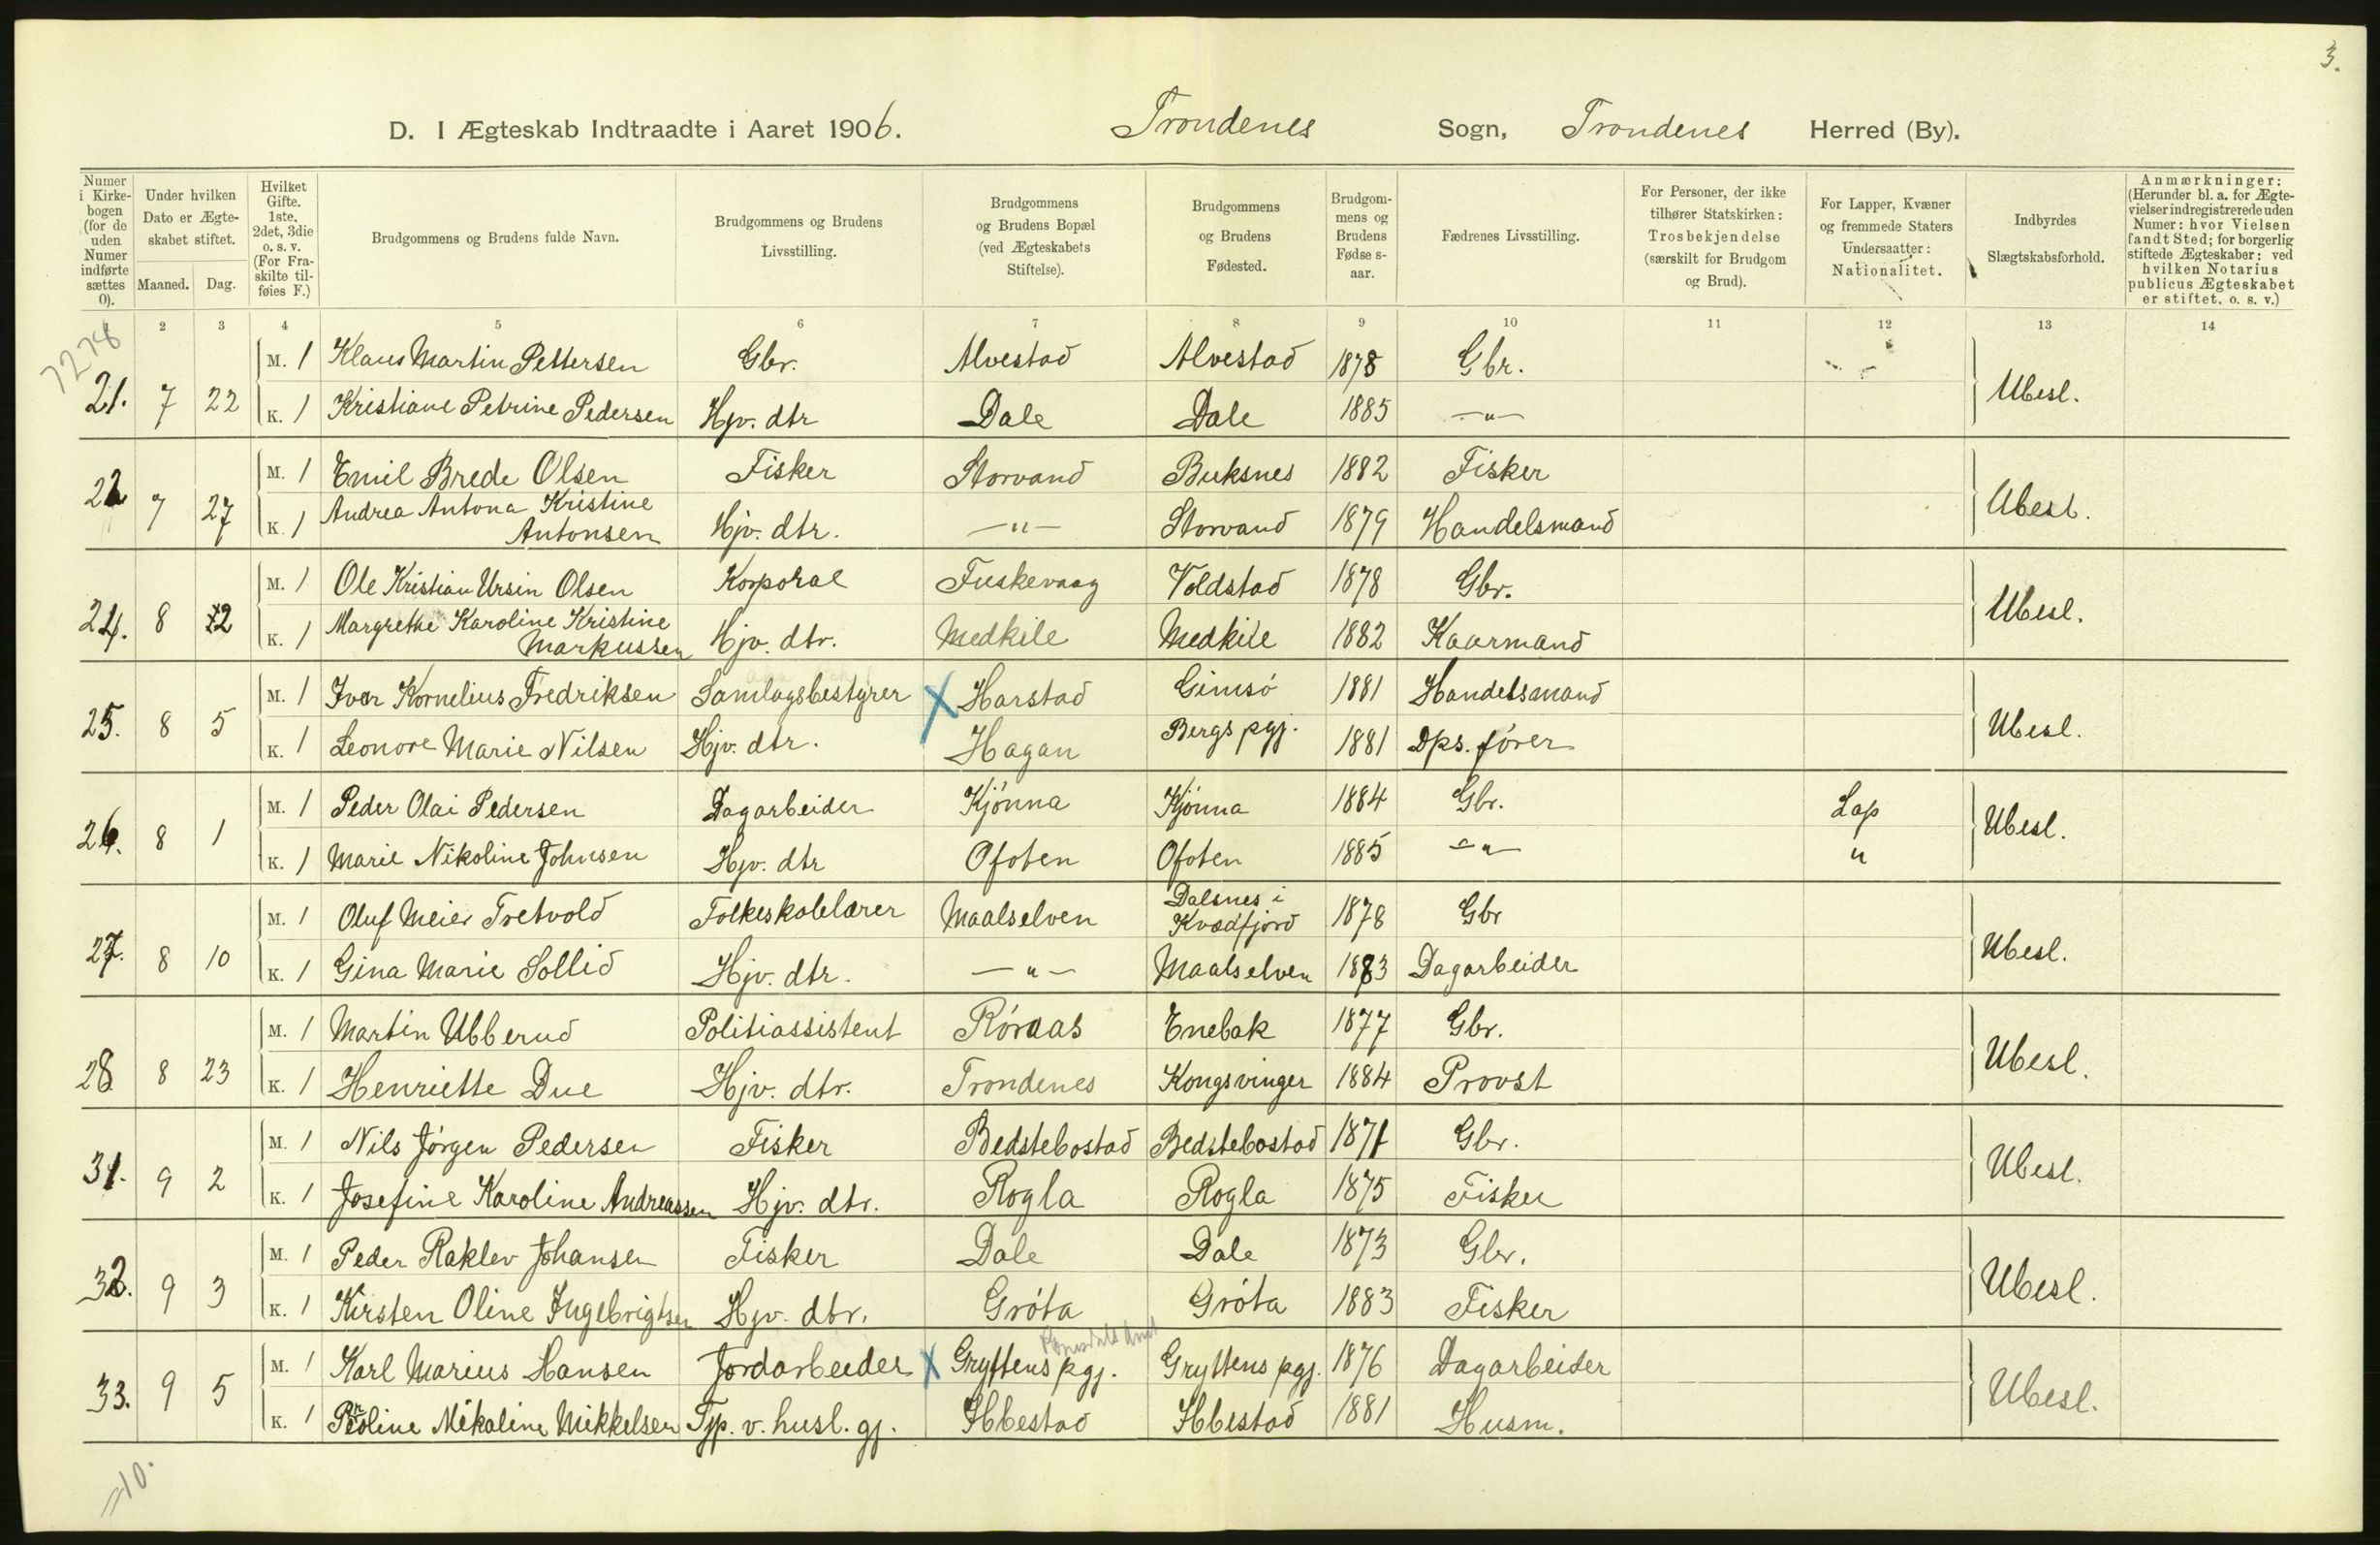 3.
D. I Ægteskab Indtraadte i Aaret 1906. Trondenes Sogn, Trondenes Herred (By).
Numer i Kirkebogen (for de uden Numer indførte sættes 0).
Under hvilken Dato er Ægteskabet stiftet.
Maaned. Dag.
Hvilket Gifte. 1ste, 2det, 3die o. s. v. (For Fraskilte tilføies F.)
Brudgommens og Brudens fulde Navn.
Brudgommens og Brudens Livsstilling.
Brudgommens og Brudens Bopæl (ved Ægteskabets Stiftelse).
Brudgommens og Brudens Fødested.
Brudgommens og Brudens Fødselsaar.
Fædrenes Livsstilling.
For Personer, der ikke tilhører Statskirken: Trosbekjendelse (særskilt for Brudgom og Brud).
For Lapper, Kvæner og fremmede Staters Undersaatter: Nationalitet.
Indbyrdes Slægtskabsforhold.
Anmærkninger: (Herunder bl. a. for Ægtevielser indregistrerede uden Numer: hvor Vielsen fandt Sted; for borgerlig stiftede Ægteskaber: ved hvilken Notarius publicus Ægteskabet er stiftet. o. s. v.)
2 3 4 5 6 7 8 9 10 11 12 13 14
7278
M. 1 Klaus Martin Pettersen Gbr. Alvestad Alvestad 1878 Gbr.
21. 7 22 K. 1 Kristiane Petrine Pedersen Hjv. dtr Dale Dale 1885 —"— Ubesl.
M. 1 Emil Brede Olsen Fisker Storvand Buksnes 1882 Fisker
22 7 27 K. 1 Andrea Antona Kristine Antonsen Hjv. dtr. —"— Storvand 1879 Handelsmand Ubesl.
M. 1 Ole Kristian Ursin Olsen Korporal Fuskevaag Voldstad 1878 Gbr.
24. 8 2 K. 1 Margrethe Karoline Kristine Markussen Hjv. dtr. Medkile Medkile 1882 Kaarmand Ubesl.
M. 1 Ivar Kornelius Fredriksen Samlagsbestyrer X Harstad Gimsö 1881 Handelsmand
25. 8 5 K. 1 Leonore Marie Nilsen Hjv. dtr. Hagan Bergs pgj. 1881 Dps. förer Ubesl.
M. 1 Peder Olai Pedersen Dagarbeider Kjönna Kjönna 1884 Gbr. Lap
26. 8 1 K. 1 Marie Nikoline Johnsen Hjv. dtr Ofoten Ofoten 1885 —"— " Ubesl.
M. 1 Oluf Meier Tretvold Folkeskolelærer Maalselven Dalsnes i Kvædfjord 1878 Gbr
27. 8 10 K. 1 Gina Marie Sollid Hjv. dtr. —"— Maalselven 1883 Dagarbeider Ubesl.
M. 1 Martin Ubberud Politiassistent Röraas Enebak 1877 Gbr.
28 8 23 K. 1 Henriette Due Hjv. dtr. Trondenes Kongsvinger 1884 Provst Ubesl.
M. 1 Nils Jörgen Pedersen Fisker Bedstebostad Bedstebostad 1871 Gbr.
31. 9 2 K. 1 Josefine Karoline Andreassen Hjv. dtr. Rogla Rogla 1875 Fisker Ubesl.
M. 1 Peder Raklev Johansen Fisker Dale Dale 1873 Gbr.
32. 9 3 K. 1 Kirsten Oline Ingebrigtsen Hjv. dtr. Gröta Gröta 1883 Fisker Ubesl.
Romsdals Amt
M. 1 Karl Marius Hansen Jordarbeider X Gryttens pgj. Gryttens pgj. 1876 Dagarbeider
33. 9 5 K. 1 Mikaline Mikkelsen Tjp. v. husl. gj. Ibbestad Ibbestad 1881 Husm. Ubesl.
=10.